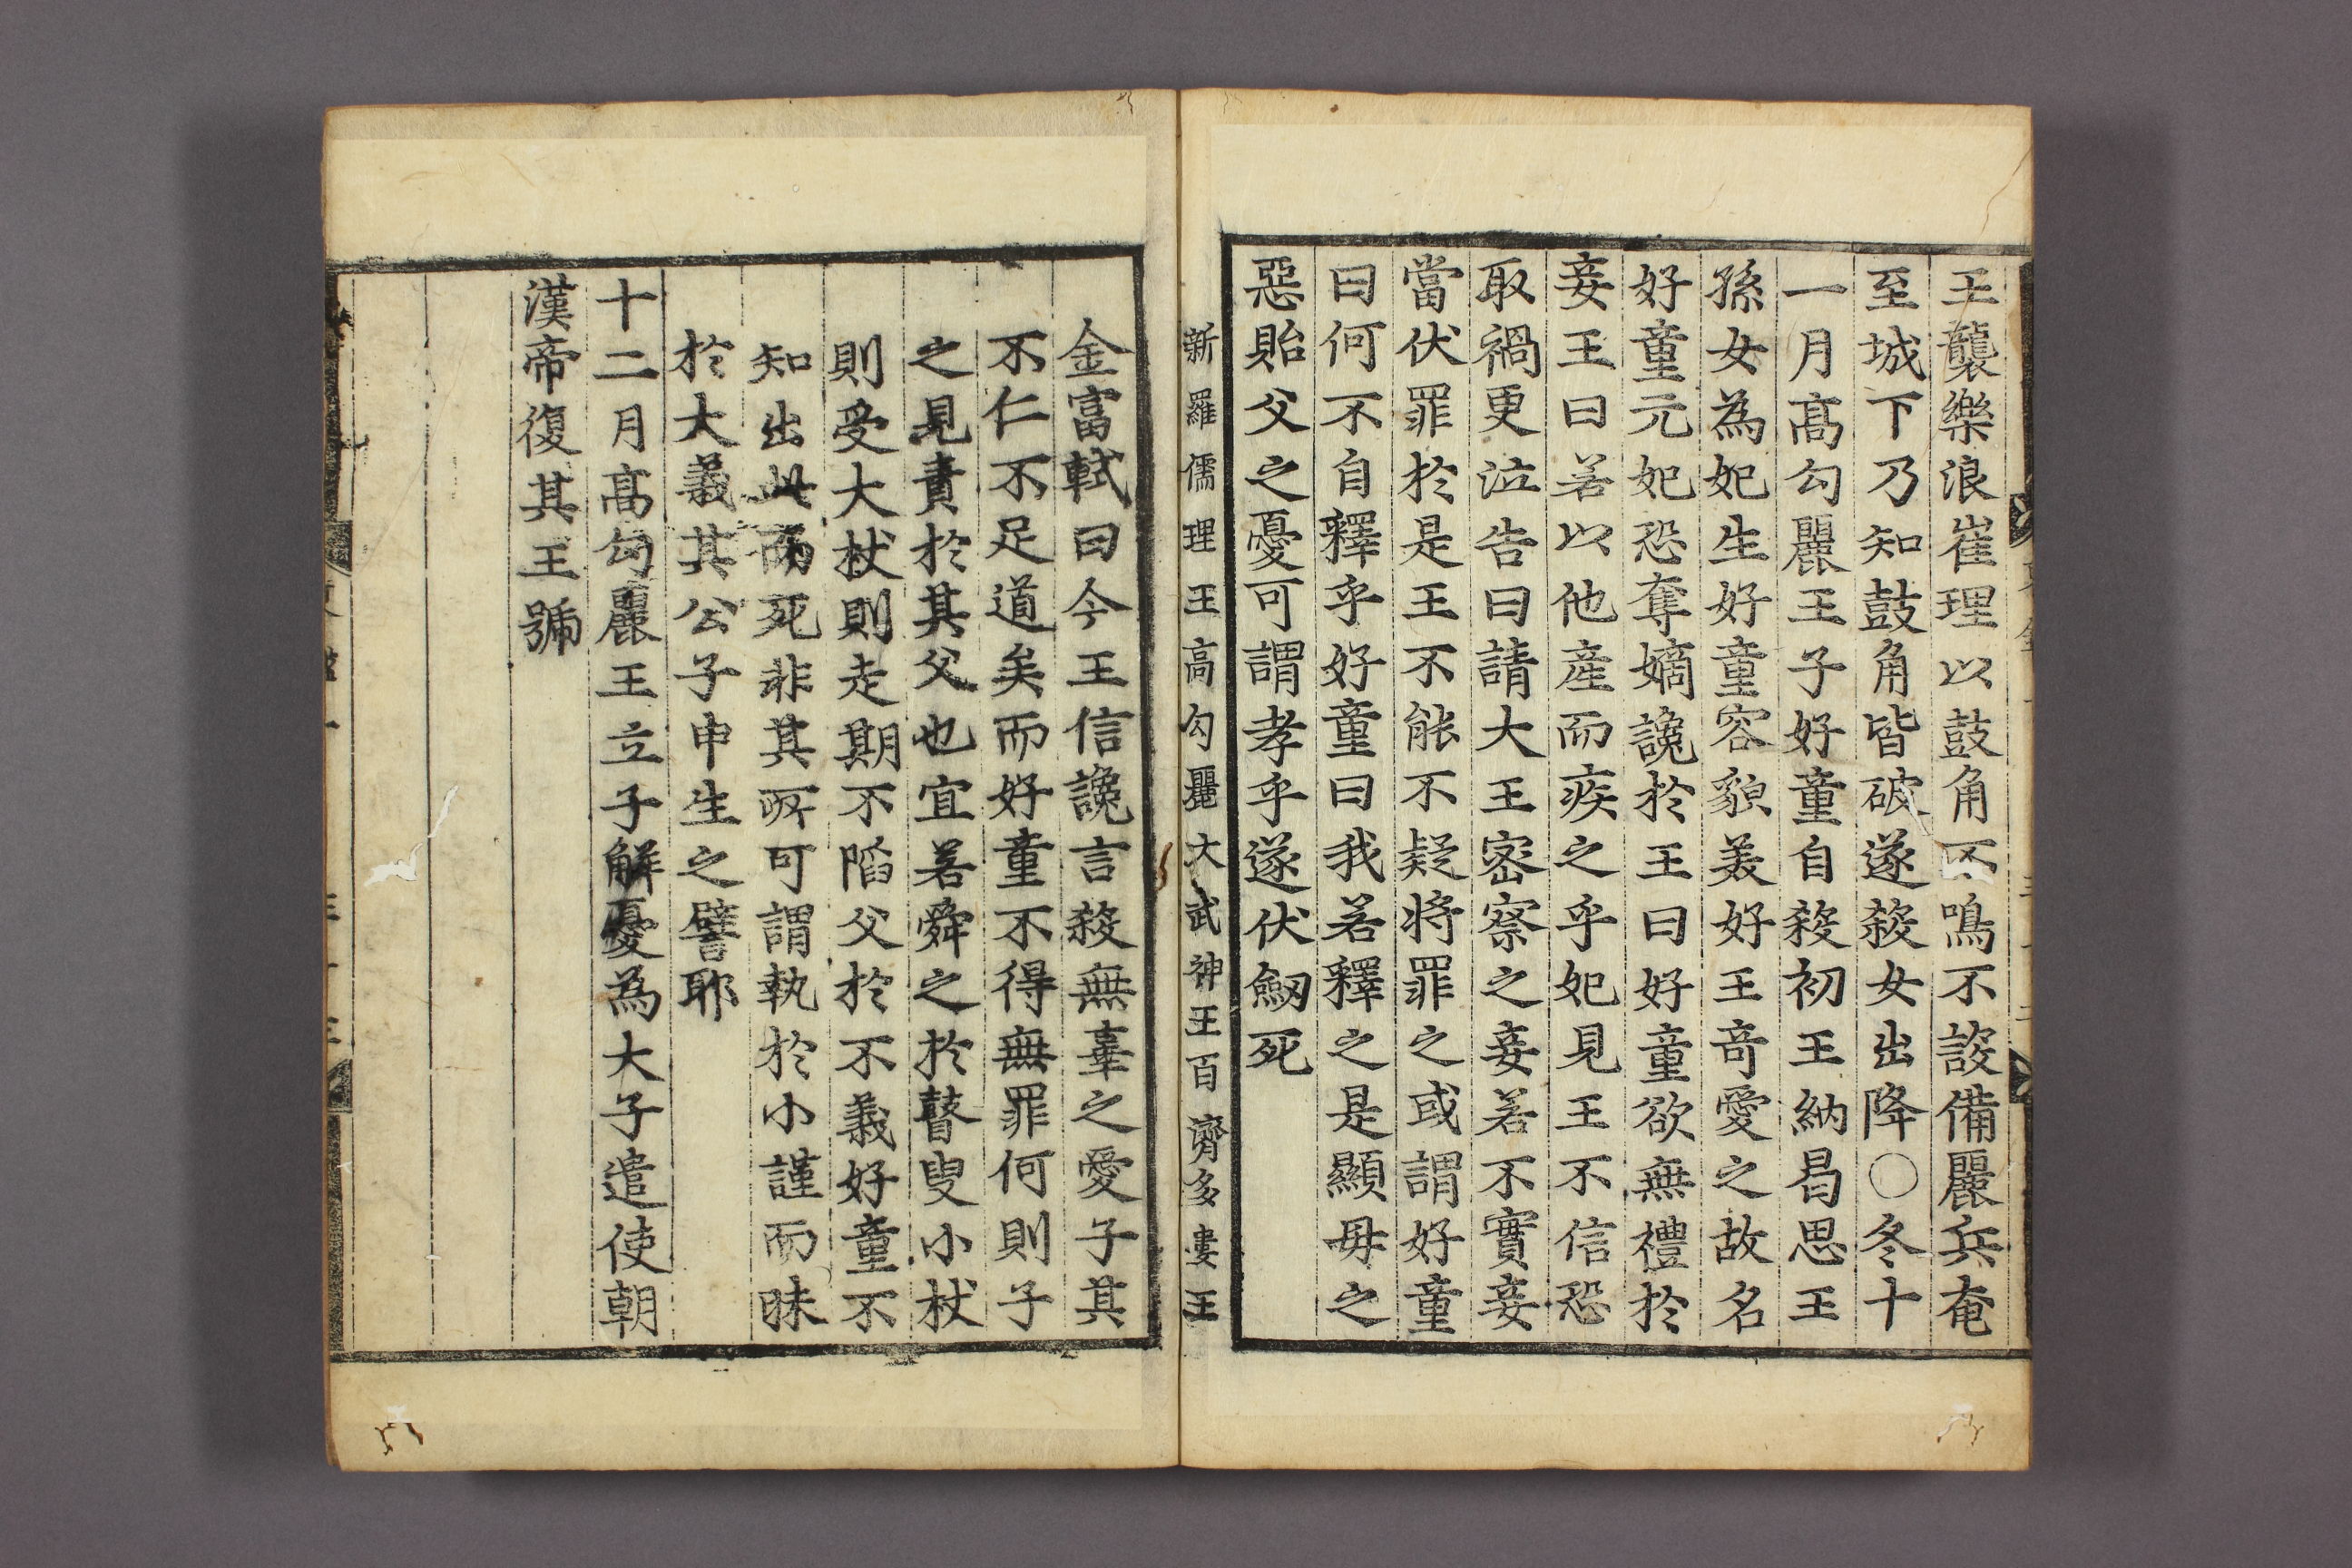 王襲樂浪崔理以鼓角不鳴不設備麗兵奄
至城下乃知鼓角皆破遂殺女出降○冬十
一月高勾麗王子好童自殺初王納曷思王
孫女為妃生好童容貌美好王奇愛之故名
好童元妃恐奪嫡讒於王曰好童欲無禮於
妾王曰若以他産而疾之乎妃見王不信恐
取禍更泣告曰請大王密察之妾若不實妾
當伏罪於是王不能不疑將罪之或謂好童
曰何不自釋乎好童曰我若釋之是顯毋之
惡貽父之憂可謂孝乎遂伏劔死
新羅儒理王高勾麗大武神王百濟多婁王
金富軾曰今王信讒言殺無辜之愛子其
不仁不足道矣而好童不得無罪何則子
之見責於其父也宜若舜之於瞽叟小杖
則受大杖則走期不陷父於不義好童不
知出此而死非其所可謂執於小謹而昧
於大義其公子申生之譬耶
十二月高勾麗王立子解憂為大子遣使朝
漢帝復其王號